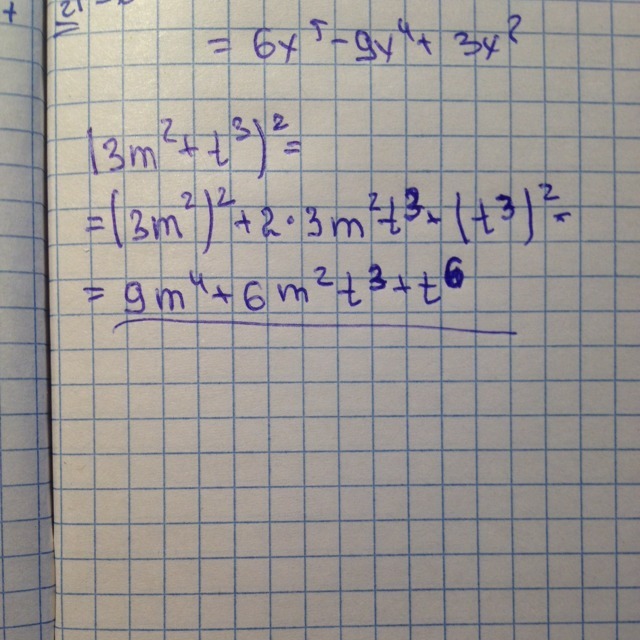 = 6x⁵ - 9x⁴ + 3x²
(3m² + t³)² =
= (3m²)² + 2·3m²t³ + (t³)² =
= 9m⁴ + 6m²t³ + t⁶